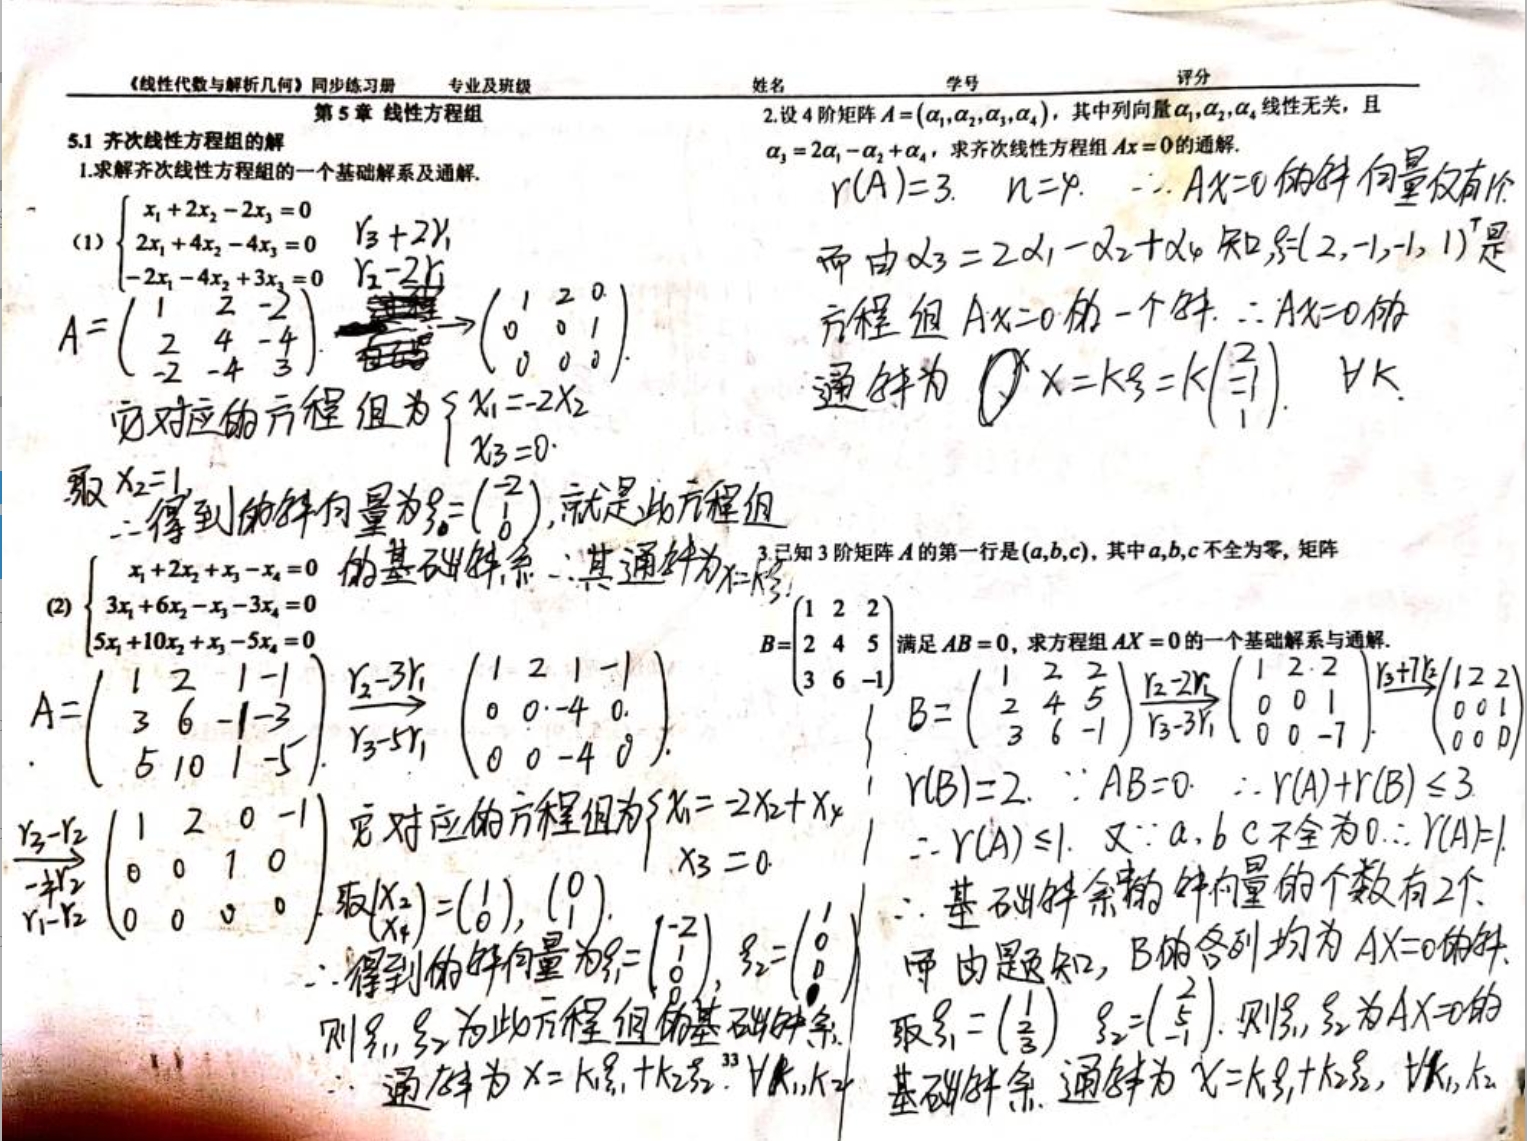 《线性代数与解析几何》同步练习册 专业及班级 姓名 学号 评分
第5章 线性方程组
5.1 齐次线性方程组的解
1.求解齐次线性方程组的一个基础解系及通解.
(1) { x₁+2x₂-2x₃=0
2x₁+4x₂-4x₃=0
-2x₁-4x₂+3x₃=0
r₃+2r₁
r₂-2r₁
A= ( 1 2 -2
2 4 -4
-2 -4 3 ) → ( 1 2 0
0 0 1
0 0 0 ).
它对应的方程组为 { x₁=-2x₂
x₃=0.
取x₂=1,
∴得到的解向量为ξ=(-2 1 0),就是此方程组
的基础解系∴其通解为x=kξ.
(2) { x₁+2x₂+x₃-x₄=0
3x₁+6x₂-x₃-3x₄=0
5x₁+10x₂+x₃-5x₄=0
A= ( 1 2 1 -1
3 6 -1 -3
5 10 1 -5 ) r₂-3r₁ → r₃-5r₁ ( 1 2 1 -1
0 0 -4 0
0 0 -4 0 ).
r₃-r₂ → -¼r₂ r₁-r₂ ( 1 2 0 -1
0 0 1 0
0 0 0 0 ).
它对应的方程组为 { x₁=-2x₂+x₄
x₃=0.
取(x₂ x₄)=(1 0),(0 1).
∴得到的解向量为ξ₁=(-2 1 0 0), ξ₂=(1 0 0
则ξ₁,ξ₂为此方程组的基础解系.
∴ 通解为x=k₁ξ₁+k₂ξ₂. ∀k₁,k₂
33
2.设4阶矩阵A=(α₁,α₂,α₃,α₄),其中列向量α₁,α₂,α₄线性无关,且
α₃=2α₁-α₂+α₄,求齐次线性方程组Ax=0的通解.
r(A)=3. n=4. ∴Ax=0的解向量仅有1个
而由α₃=2α₁-α₂+α₄知,ξ=(2,-1,-1,1)ᵀ是
方程组Ax=0的一个解.∴Ax=0的
通解为 x=kξ=k(2 -1 -1 1). ∀k.
3.已知3阶矩阵A的第一行是(a,b,c),其中a,b,c不全为零,矩阵
B= ( 1 2 2
2 4 5
3 6 -1 ) 满足AB=0,求方程组AX=0的一个基础解系与通解.
B= ( 1 2 2
2 4 5
3 6 -1 ) r₂-2r₁ → r₃-3r₁ ( 1 2 2
0 0 1
0 0 -7 ). r₃+7r₂ → ( 1 2 2
0 0 1
0 0 0 )
r(B)=2. ∵AB=0. ∴r(A)+r(B)≤3.
∴r(A)≤1. 又∵a,b c不全为0.∴r(A)=1.
∴基础解系中的解向量的个数有2个.
而由题知,B的各列均为AX=0的解.
取ξ₁=(1 2 3) ξ₂=(2 5 -1).则ξ₁,ξ₂为AX=0的
基础解系. 通解为x=k₁ξ₁+k₂ξ₂, ∀k₁,k₂